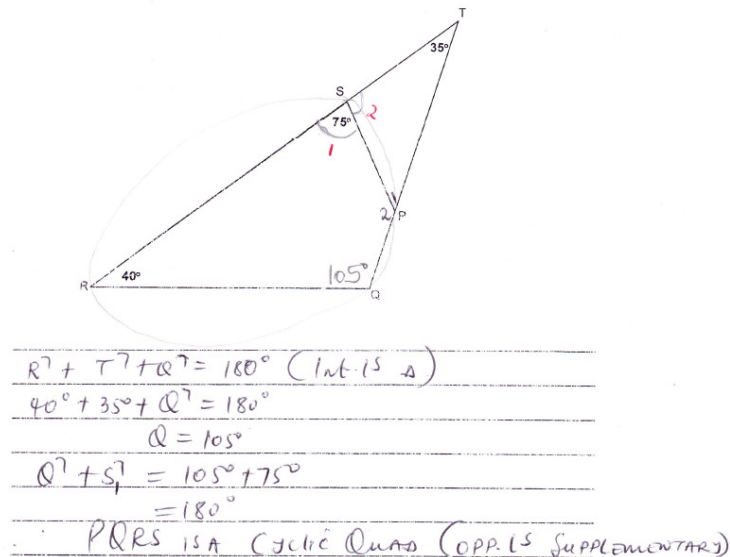 T
35°
S
75°
2
1
2 P
40°
105°
R
Q
R̂ + T̂ + Q̂ = 180° (Int. ∠s Δ)
40° + 35° + Q̂ = 180°
Q = 105°
Q̂ + Ŝ₁ = 105° + 75°
= 180°
∴ PQRS IS A Cyclic QUAD (OPP. ∠s SUPPLEMENTARY)